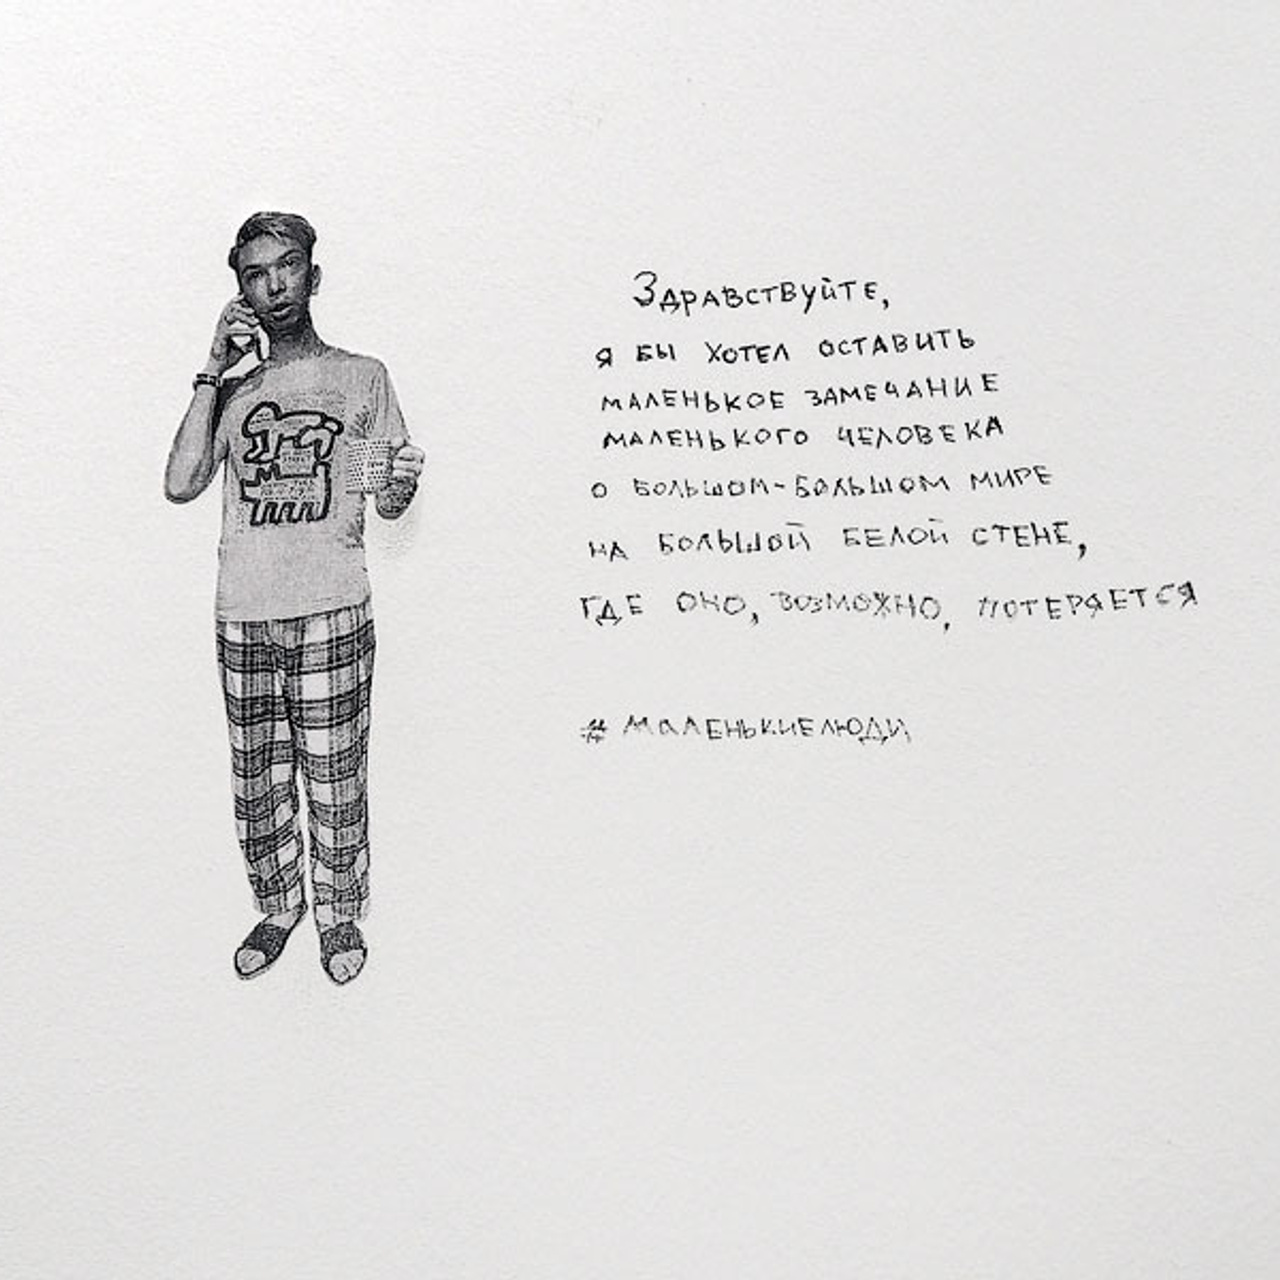 Здравствуйте,
я бы хотел оставить
маленькое замечание
маленького человека
о большом-большом мире
на большой белой стене,
где оно, возможно, потеряется
#маленькиелюди